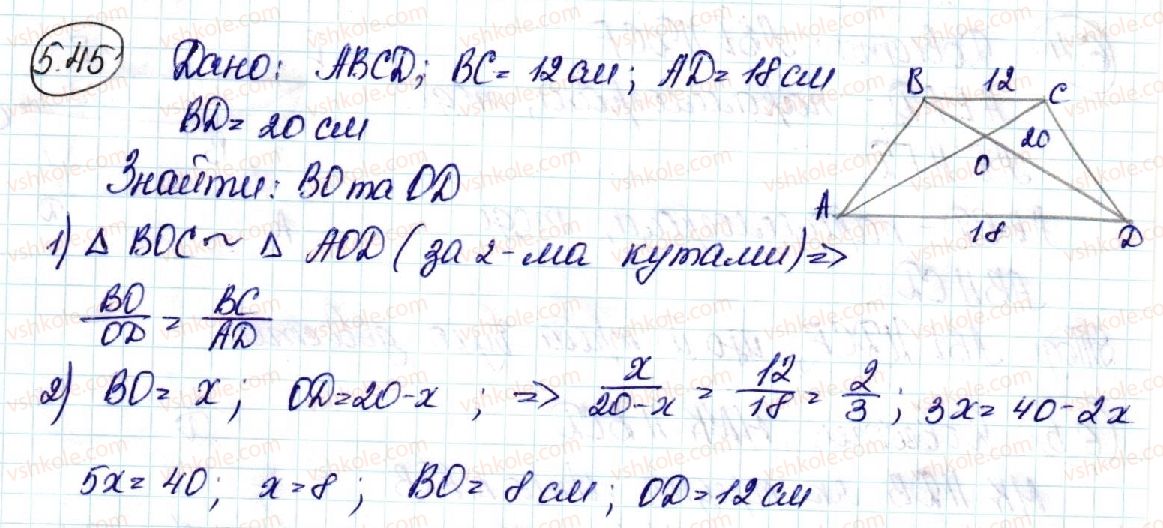 5.45 Дано: ABCD; BC = 12 см; AD = 18 см
BD = 20 см
Знайти: BO та OD
1) Δ BOC ~ Δ AOD (за 2-ма кутами) =>
BO/OD = BC/AD
2) BO = x; OD = 20 - x ; => x/(20-x) = 12/18 = 2/3 ; 3x = 40 - 2x
5x = 40; x = 8 ; BO = 8 см; OD = 12 см
B 12 C
20
O
A 18 D
vshkole.com